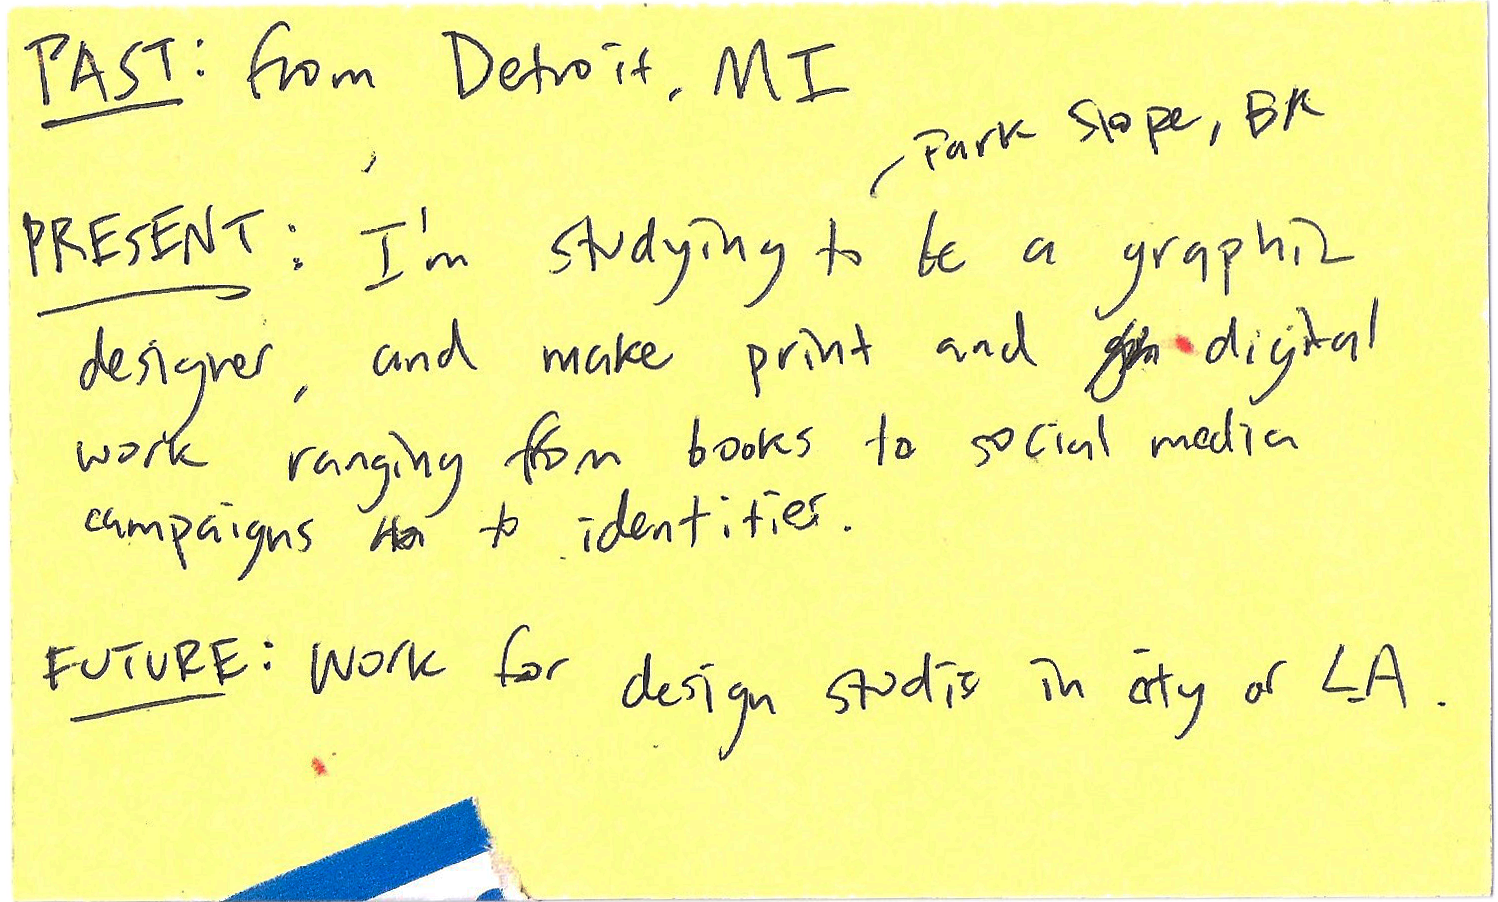 PAST: from Detroit, MI
Park Slope, BK
PRESENT: I'm studying to be a graphic
designer, and make print and digital
work ranging from books to social media
campaigns to identities.
FUTURE: Work for design studio in city or LA.